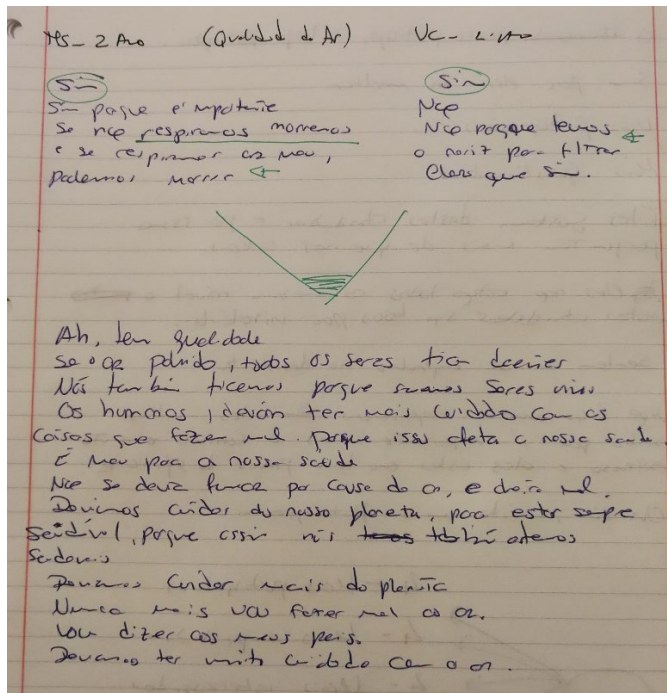 MS - 2 Ano (Qualidade do Ar) VC -
Sim
Sim porque é importante
Se não respiramos morremos
e se respirarmos ar mau,
podemos morrer
Sim
Não
Não porque temos
o nariz para filtrar
Claro que sim.
Ah, tem qualidade
Se o ar poluido, todos os seres ficam doentes
Nós também ficamos porque somos Seres vivos
Os humanos, devam ter mais cuidado com as
Coisas que fazem mal. porque isso afeta a nossa saude
É mau para a nossa saúde
Não se devia fumar por causa do ar, e do mal.
Devíamos cuidar do nosso planeta, para estar sempre
Saudável, porque assim nós também estamos
Saudaveis
Devemos Cuidar mais do planeta
Nunca mais vou fazer mal ao ar.
Vou dizer aos meus pais.
Devemos ter muito cuidado com o ar.